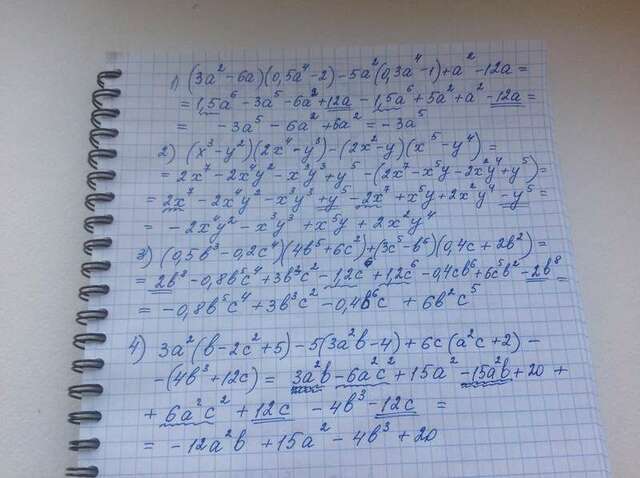 1) (3a² - 6a)(0,5a⁴ - 2) - 5a²(0,3a⁴ - 1) + a² - 12a =
= 1,5a⁶ - 3a⁵ - 6a² + 12a - 1,5a⁶ + 5a² + a² - 12a =
= - 3a⁵ - 6a² + 6a² = - 3a⁵
2) (x³ - y²)(2x⁴ - y³) - (2x² - y)(x⁵ - y⁴) =
= 2x⁷ - 2x⁴y² - x³y³ + y⁵ - (2x⁷ - x⁵y - 2x²y⁴ + y⁵) =
= 2x⁷ - 2x⁴y² - x³y³ + y⁵ - 2x⁷ + x⁵y + 2x²y⁴ - y⁵ =
= - 2x⁴y² - x³y³ + x⁵y + 2x²y⁴
3) (0,5b³ - 0,2c⁴)(4b⁵ + 6c²) + (3c⁵ - b⁶)(0,4c + 2b²) =
= 2b⁸ - 0,8b⁵c⁴ + 3b³c² - 1,2c⁶ + 1,2c⁶ - 0,4cb⁶ + 6c⁵b² - 2b⁸ =
= - 0,8b⁵c⁴ + 3b³c² - 0,4b⁶c + 6b²c⁵
4) 3a²(b - 2c² + 5) - 5(3a²b - 4) + 6c(a²c + 2) -
- (4b³ + 12c) = 3a²b - 6a²c² + 15a² - 15a²b + 20 +
+ 6a²c² + 12c - 4b³ - 12c =
= - 12a²b + 15a² - 4b³ + 20